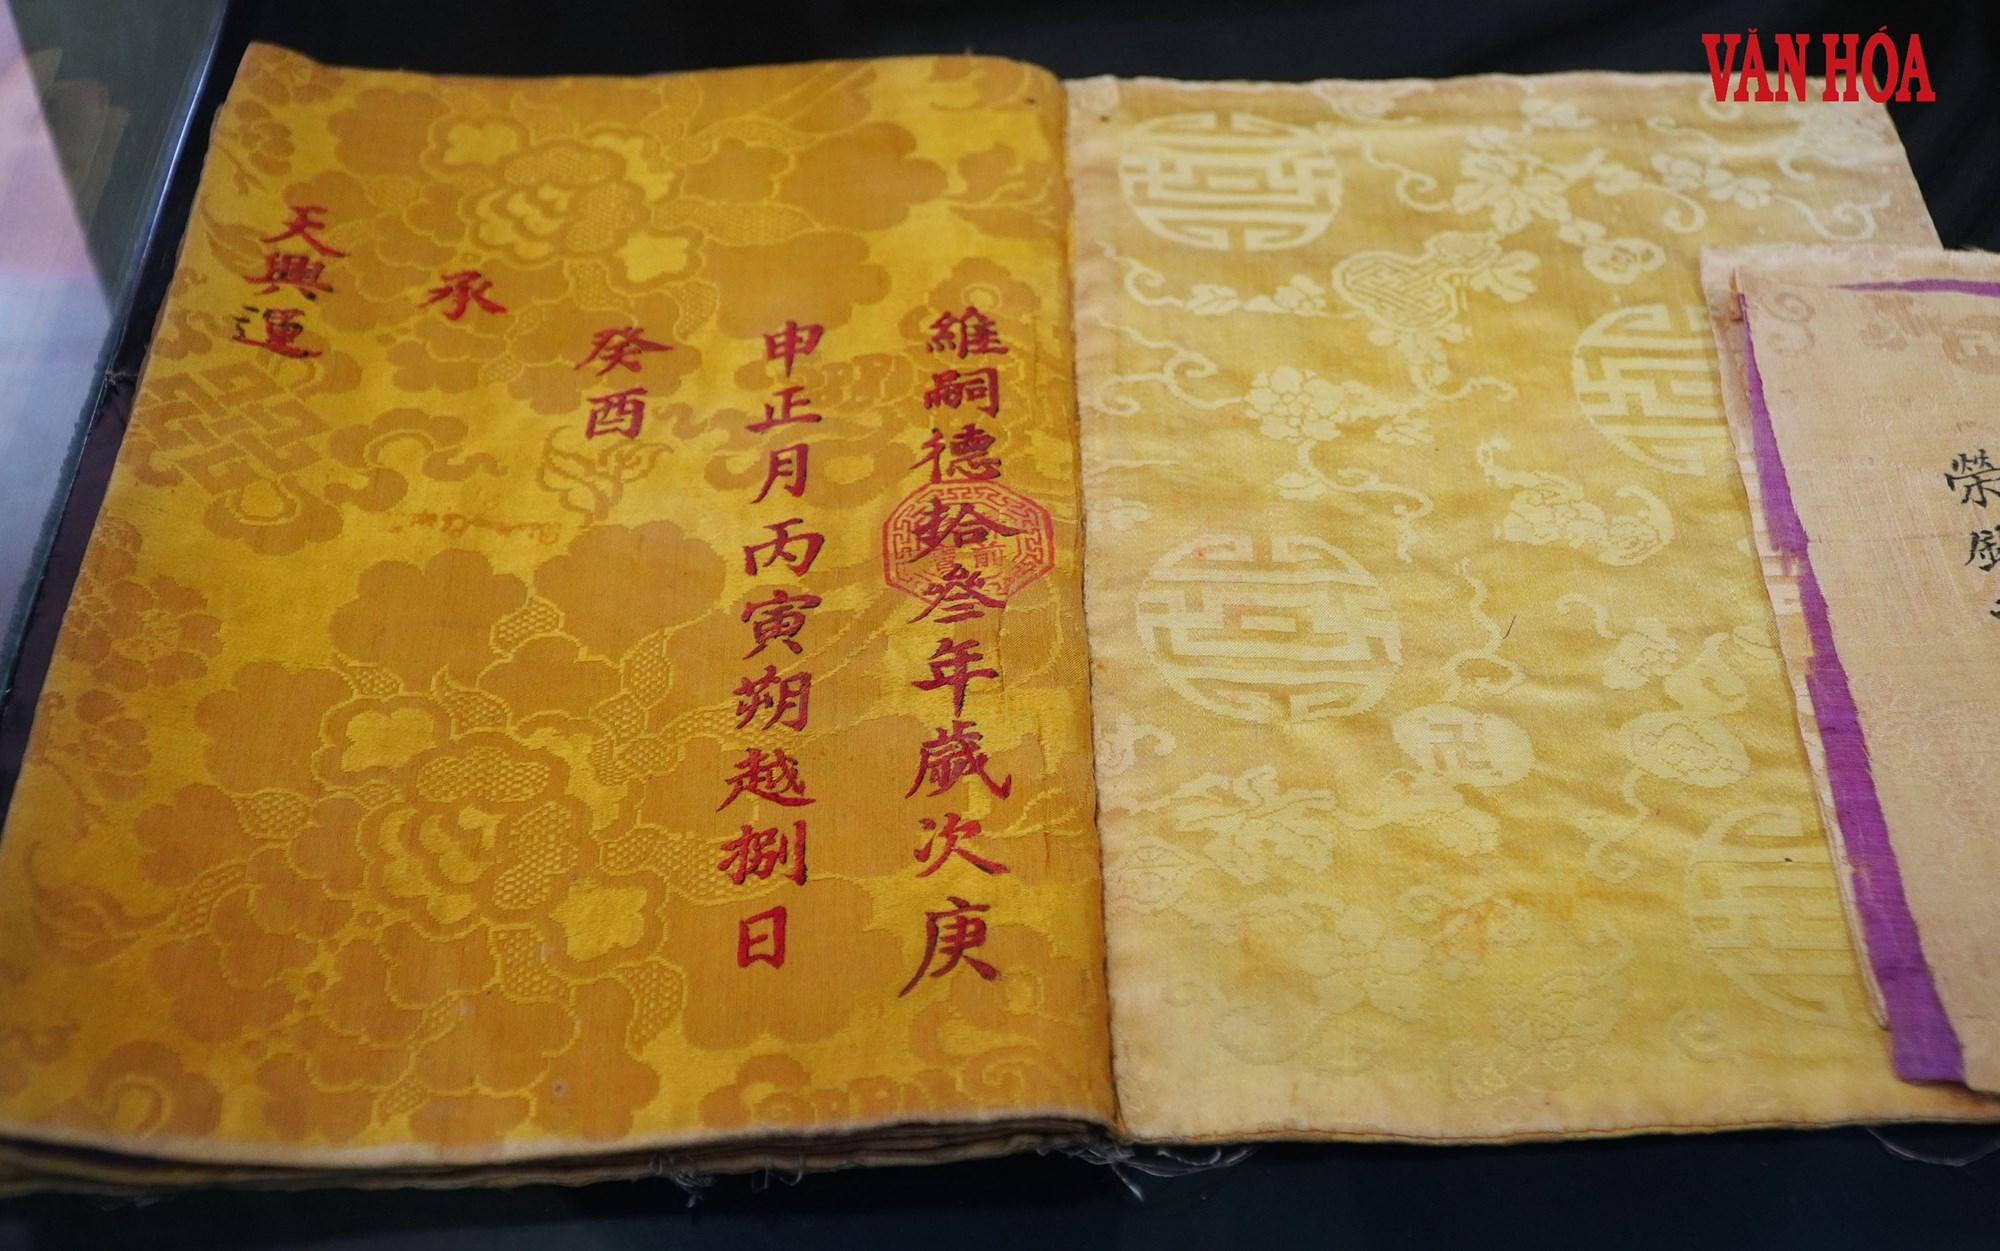 VĂN HÓA
維嗣德拾叄年歲次庚
申正月丙寅朔越捌日
癸酉
承
天興運
榮